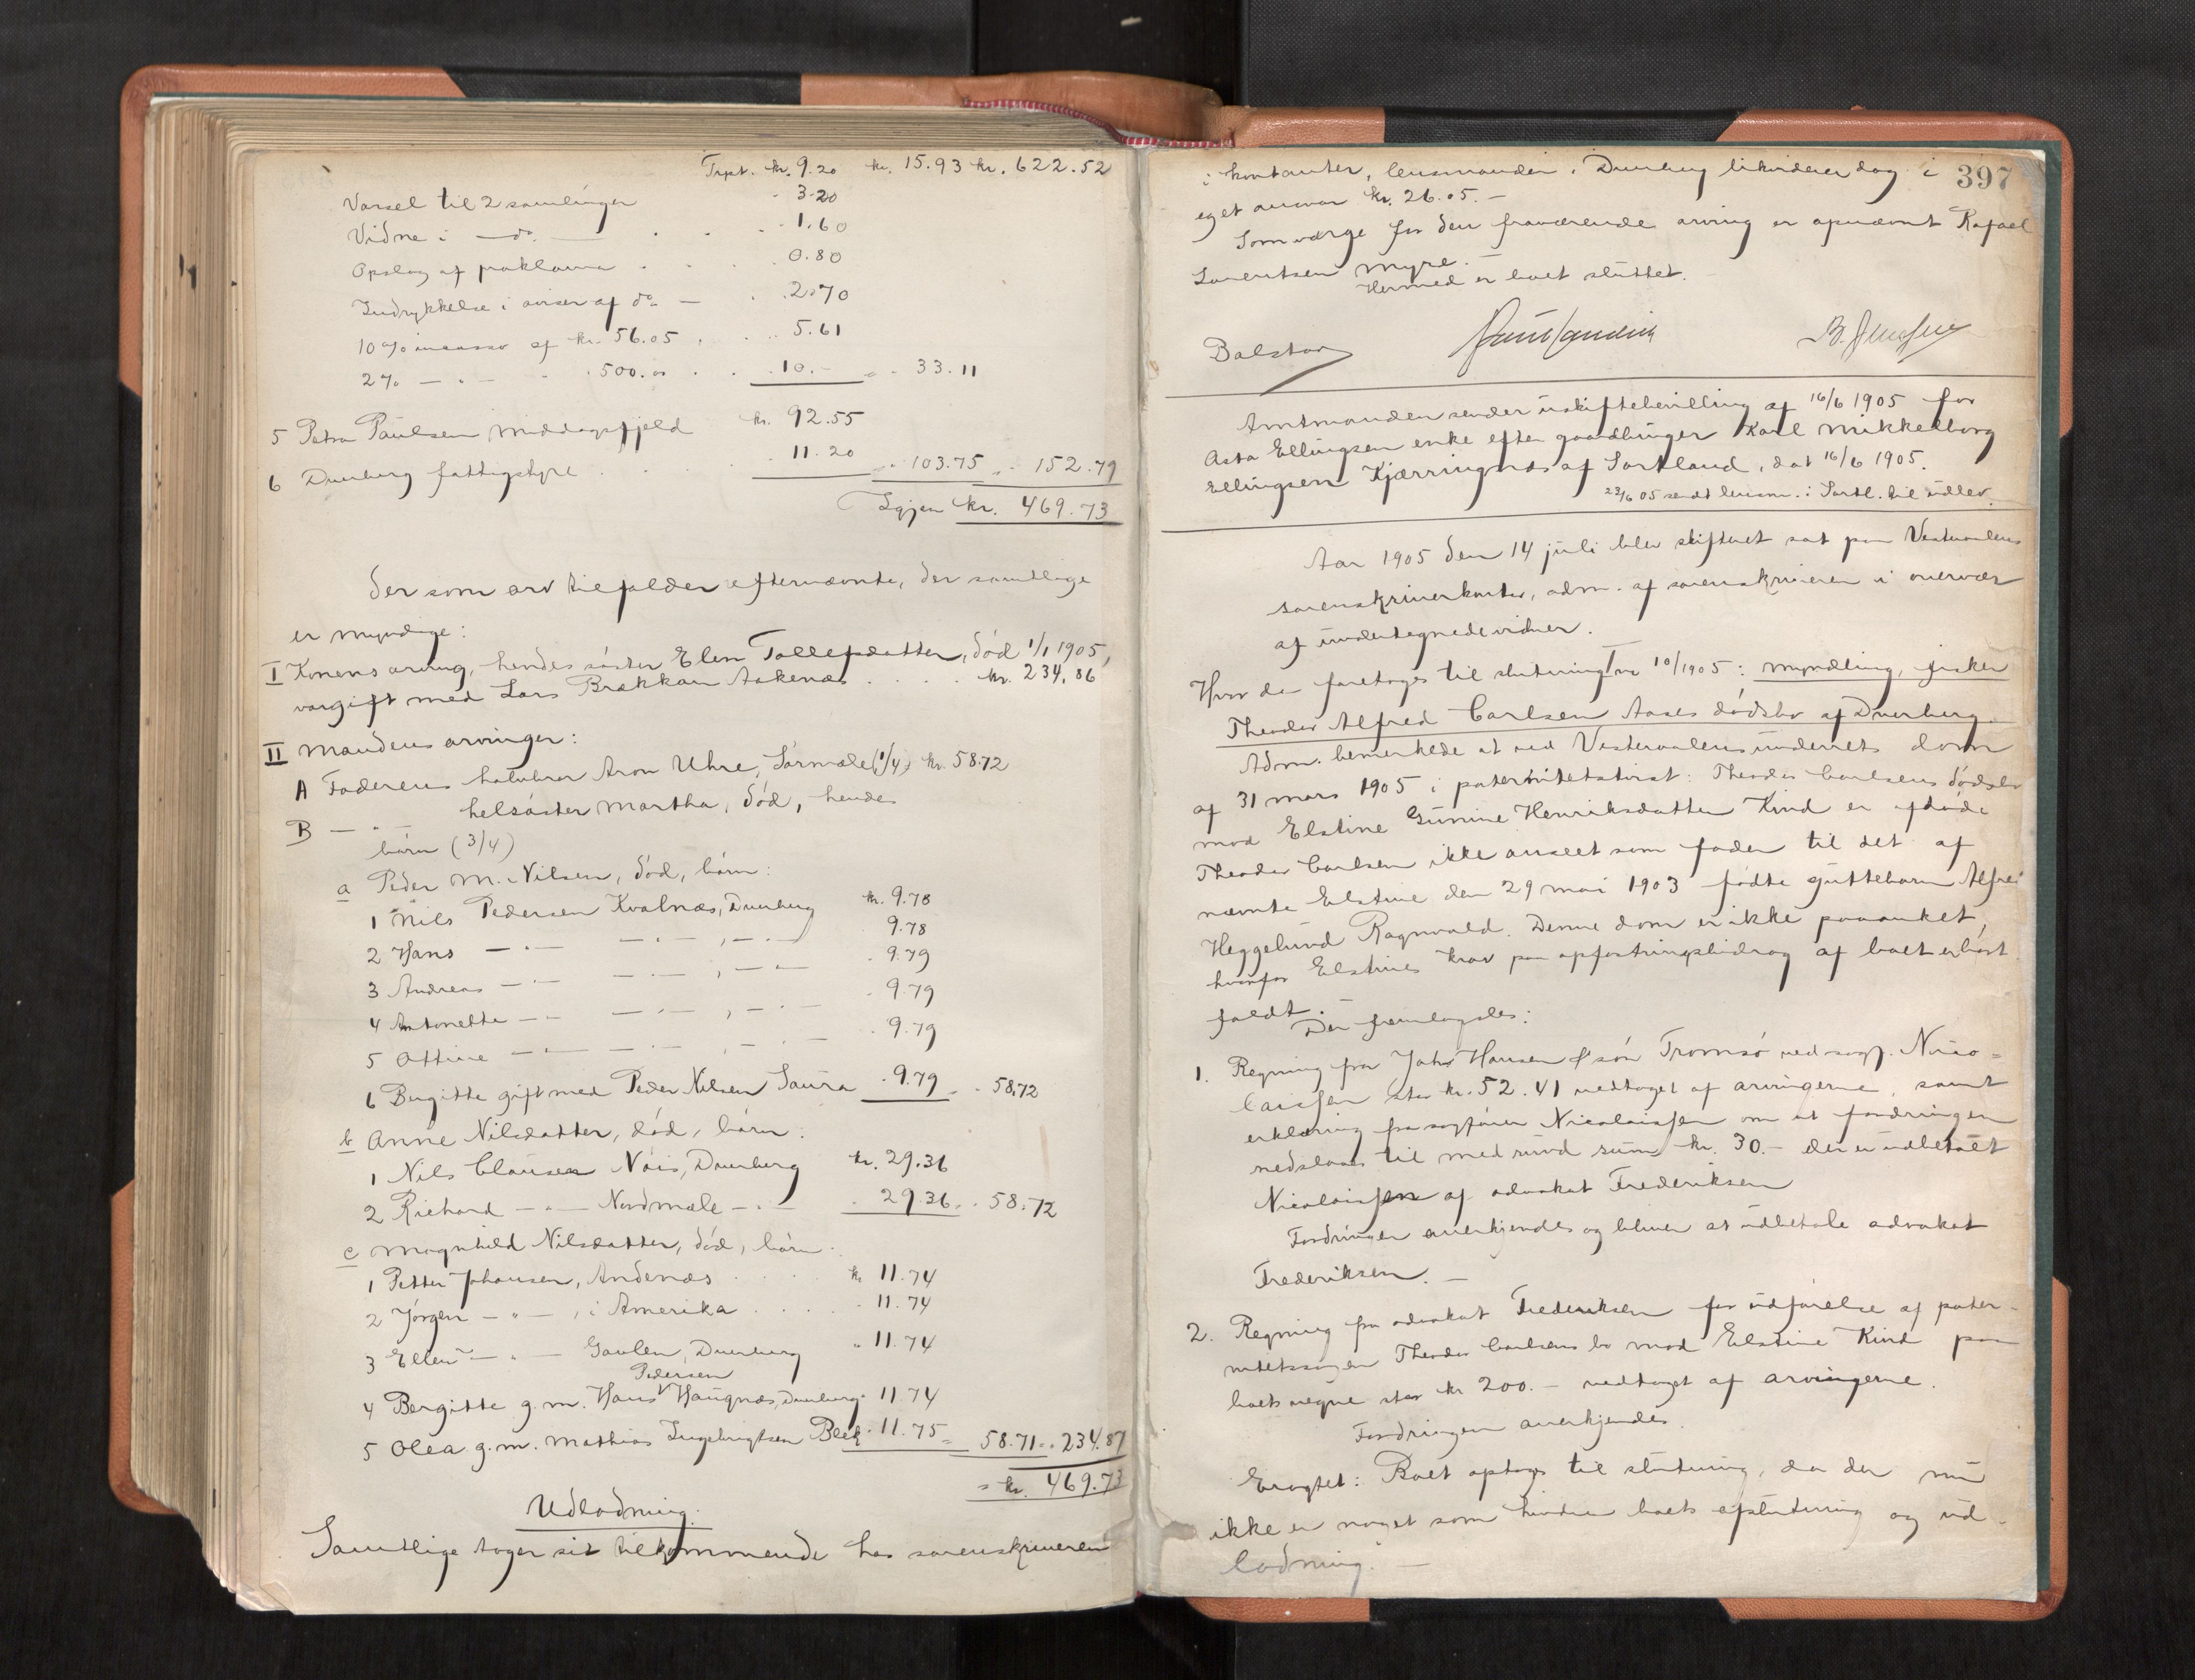 Trpt. kr. 9.20 kr. 15.93 kr. 622.52
Varsel til 2 samlinger - 3.20
Vidne i - do - 1.60
Opslag af proklama 0.80
Indrykkelse i aviser af do - 2.70
10% incasso af kr. 56.05 5.61
2% - " - " 500.00 10.- " 33.11
5 Petra Paulsen Middagsfjeld kr. 92.55
6 Dverberg fattigstyre 11.20 103.75 152.79
Igjen kr. 469.73
der som arv tilfalder efternævnte, der samtlige
er myndige:
I Konens arving, hendes søster Elen Tollefsdatter, død 1/1 1905,
vargift med Lars Brækkan Aakenæs kr. 234.86
II Mandens arvinger:
A Faderens halvbror Aron Uhre, Sørmæle (1/4) kr. 58.72
B - " - helsøster Martha, død, hendes
børn (3/4)
a Peder M. Nilsen, død, børn:
1 Nils Pedersen Kvalnæs, Dverberg kr. 9.78
2 Hans - " - - " - , - " - 9.78
3 Andreas - " - - " - , - " - 9.79
4 Antonette - " - - " - , - " - 9.79
5 Ottine - " - - " - , - " - 9.79
6 Bergitte gift med Peder Nilsen Saura 9.79 58.72
b Anne Nilsdatter, død, børn:
1 Nils Clausen Nøis, Dverberg kr. 29.36
2 Richard - " - Nordmæle - " - 29.36 58.72
c Magnhild Nilsdatter, død, børn:
1 Petter Johansen, Andenæs kr 11.74
2 Jørgen - " - , i Amerika 11.74
3 Ellen - " - Gavlen, Dverberg " 11.74
Pedersen
4 Bergitte g. m. Hans Haugnæs, Dverberg 11.74
5 Olea g. m. Mathias Ingebrigtsen Bleik 11.75 58.71 234.87
kr. 469.73
Udlodning:
Samtlige tager sit tilkommende hos sorenskriveren
397
i kontanter, lensmanden i Dverberg likviderer dog i
eget ansvar kr. 26.05.-
Som værge for den fraværende arving er opnævnt Rafael
Lorentsen Myre.
Hermed er boet sluttet.
Balstad B. Jenssen
Amtmanden sender uskiftebevilling af 16/6 1905 for
Asta Ellingsen enke efter gaardbruger Karl Mikkelborg
Ellingsen Kjærringnæs af Sortland, dat 16/6 1905.
23/6 05 sendt lensm. i Sortl. til udlev.
Aar 1905 den 14 juli blev skifteret sat paa Vesteraalens
sorenskriverkontor, adm. af sorenskriveren i overvær
af undertegnede vidner.
Hvor da foretages til slutning no 10/1905: myndling, fisker
Theodor Alfred Carlsen Aases dødsbo af Dverberg.
Adm. bemerkede at ved Vesteraalens underrets dom
af 31 mars 1905 i paternitetstvist: Theodor Carlsens dødsbo
mod Elstine Gunine Henriksdatter Kind er afdøde
Theodor Carlsen ikke anseet som fader til det af
nævnte Elstine den 29 mai 1903 fødte guttebarn Alfred
Heggelund Ragnvald. Denne dom er ikke paaanket,
hvorfor Elstines krav paa opfostringsbidrag af boet er bort
faldt.
Der fremlagdes:
1. Regning fra Johs Hansen & søn Tromsø ved sagf. Nico=
laissen stor kr. 52.41 vedtaget af arvingerne, samt
erklæring fra sagfører Nicolaissen om at fordringen
nedslaaes til med rund sum kr. 30.- der er udbetalt
Nicolaissen af advokat Frederiksen
Fordringen anerkjendes og bliver at udbetale advokat
Frederiksen. -
2. Regning fra advokat Frederiksen for udførelse af pater-
nitetssagen Theodor Carlsens bo mod Elstine Kind paa
boets vegne stor kr 200.- vedtaget af arvingerne.
Fordringen anerkjendes.
Eragtet: Boet optages til slutning, da der nu
ikke er noget som hindrer boets afslutning og ud-
lodning. -